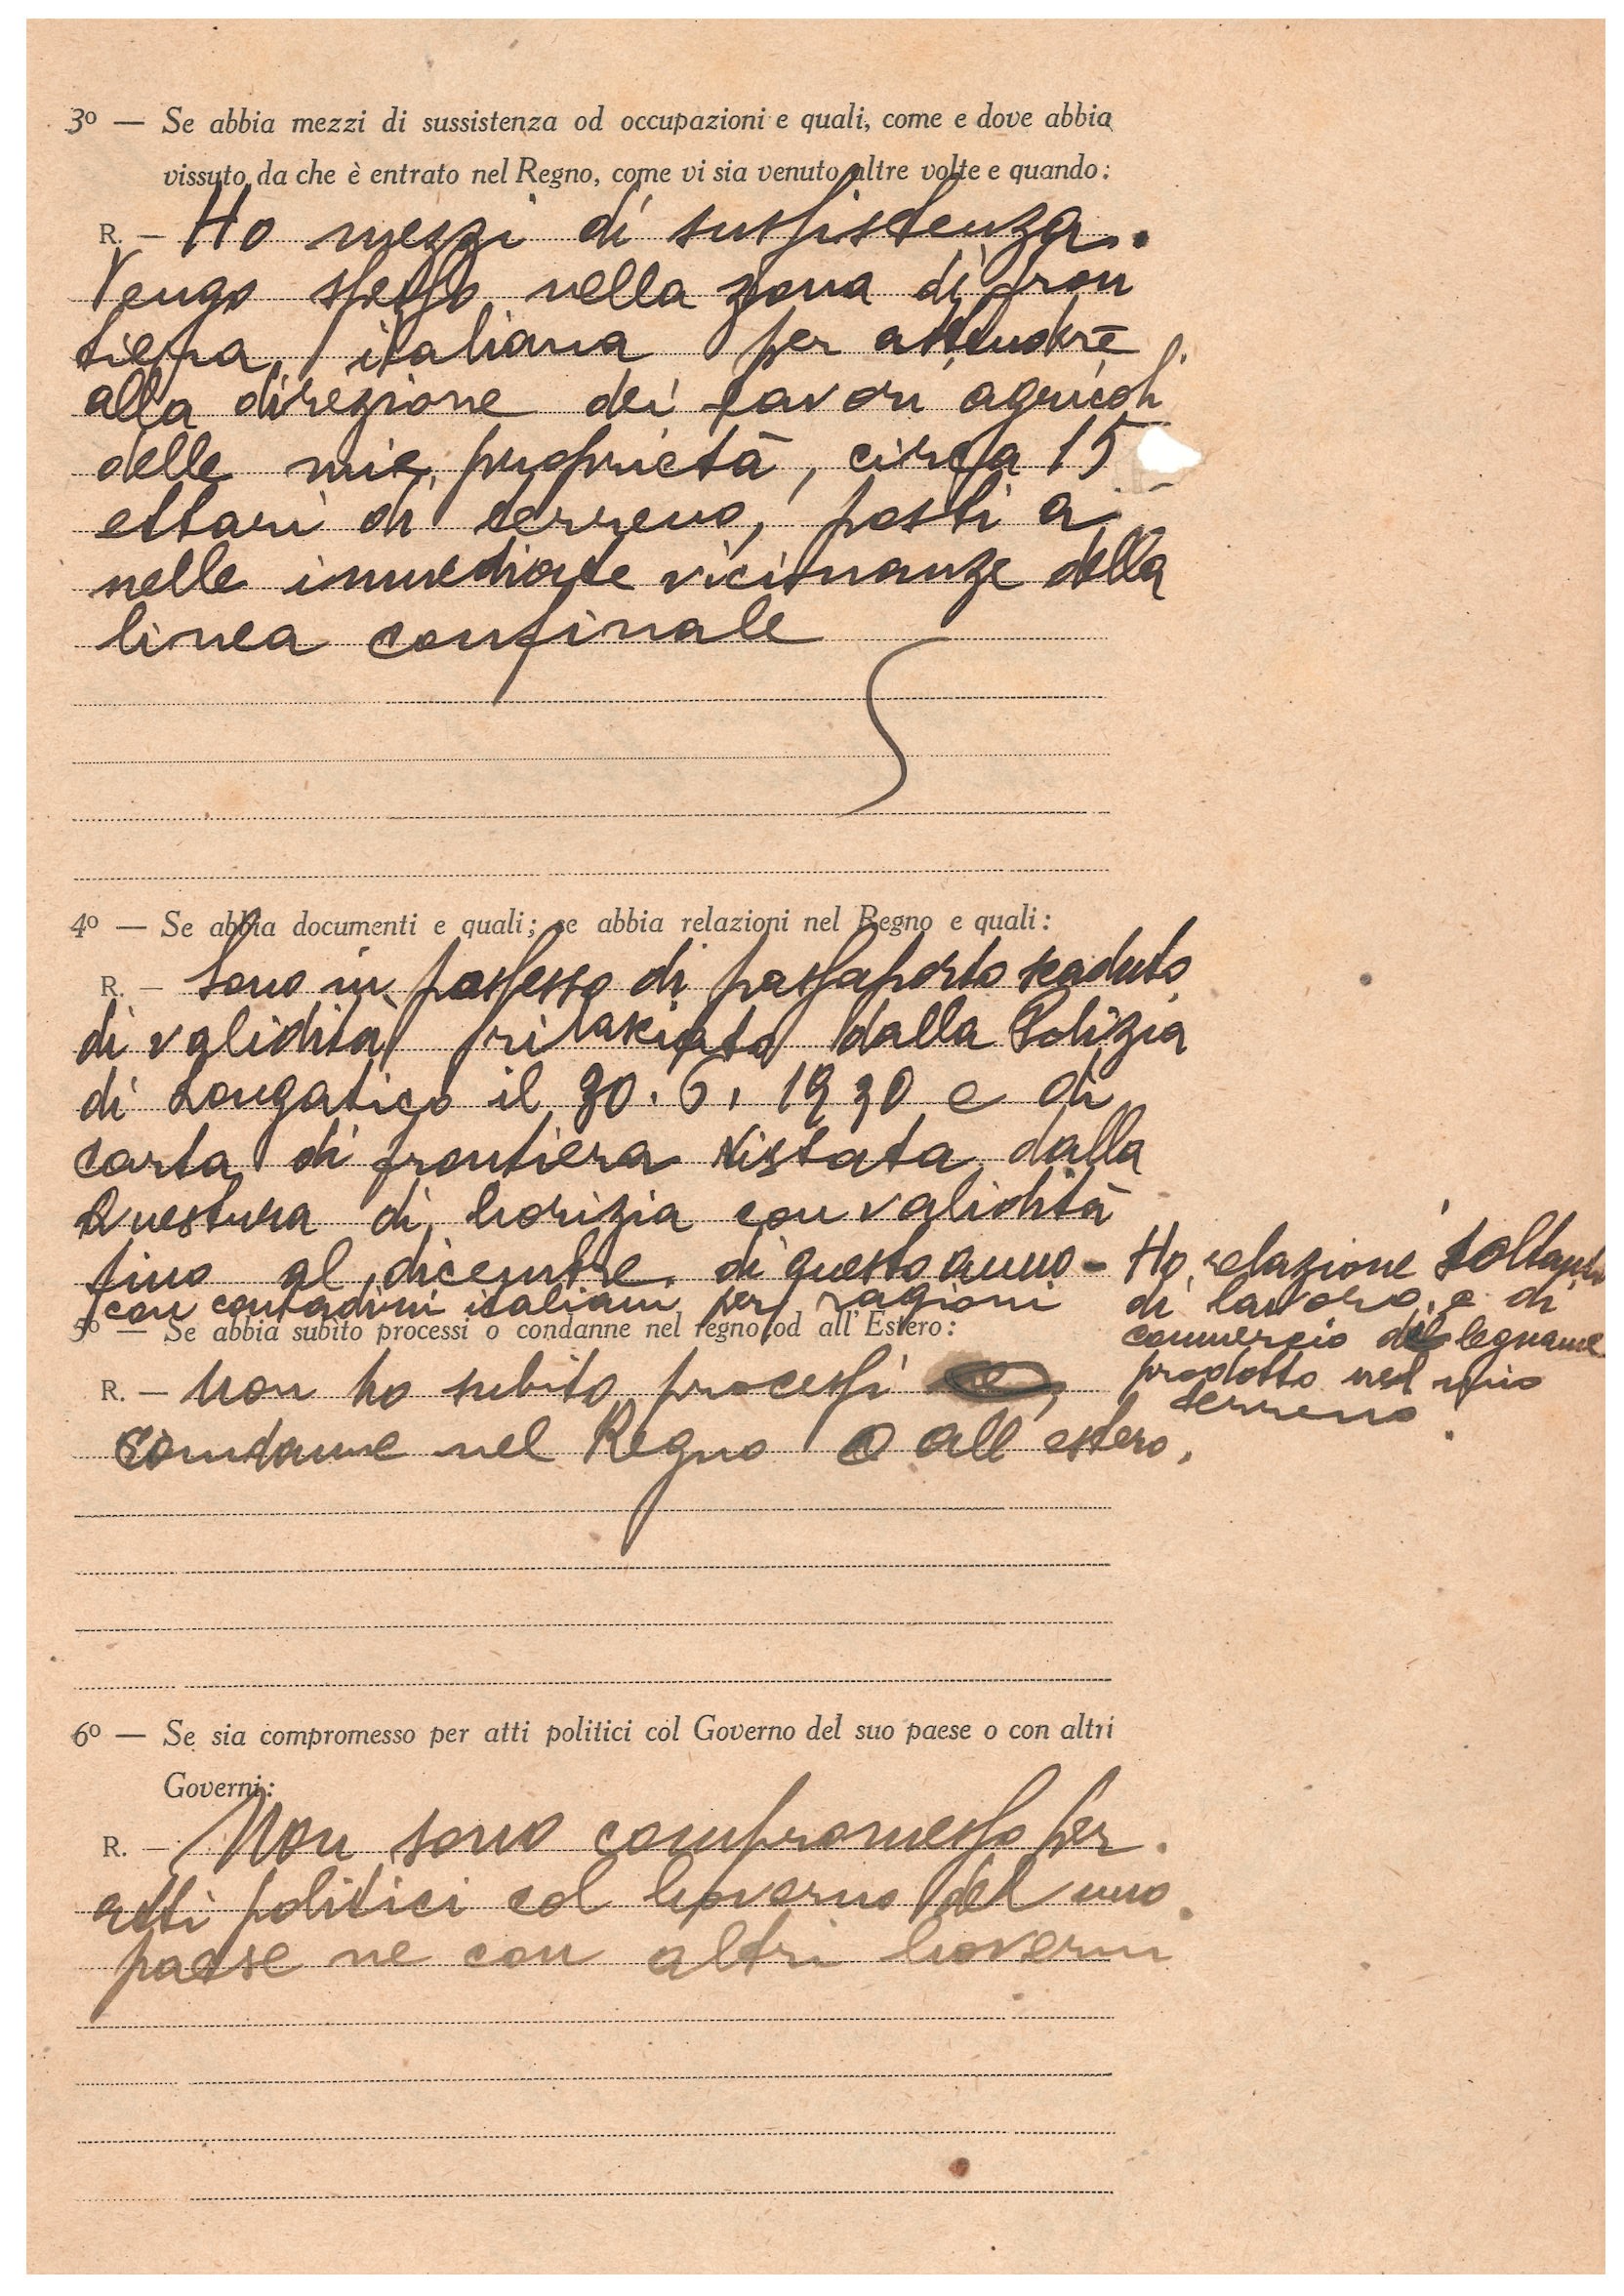 3º — Se abbia mezzi di sussistenza od occupazioni e quali, come e dove abbia
vissuto da che è entrato nel Regno, come vi sia venuto altre volte e quando:
R. — Ho mezzi di sussistenza.
Vengo spesso nella zona di fron
tiera italiana per attendere
alla direzione dei lavori agricoli
delle mie proprietà, circa 15
ettari di terreno, posti a
nelle immediate vicinanze della
linea confinale
4º — Se abbia documenti e quali; se abbia relazioni nel Regno e quali:
R. — Sono in possesso di passaporto scaduto
di validità rilasciato dalla Polizia
di Longatico il 30.6.1930 e di
carta di frontiera vistata dalla
Questura di Gorizia con validità
fino al dicembre di questo anno - Ho relazione soltanto
con contadini italiani per ragioni di lavoro e di
commercio del legname
prodotto nel mio
terreno.
5º — Se abbia subito processi o condanne nel regno od all'Estero:
R. — Non ho subito processi
condanne nel Regno o all estero.
6º — Se sia compromesso per atti politici col Governo del suo paese o con altri
Governi:
R. — Non sono compromesso per
atti politici col Governo del mio
paese ne con altri Governi